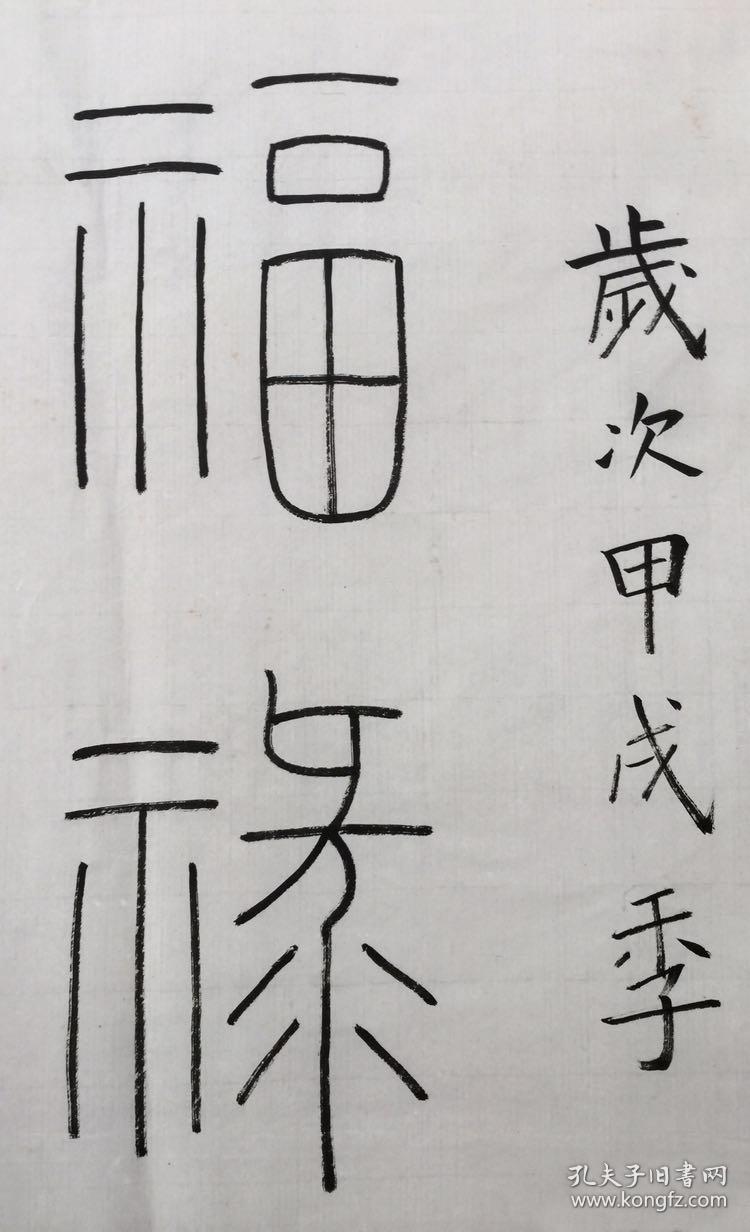 歲次甲戌季
福祿
孔夫子旧書网
www.kongfz.com